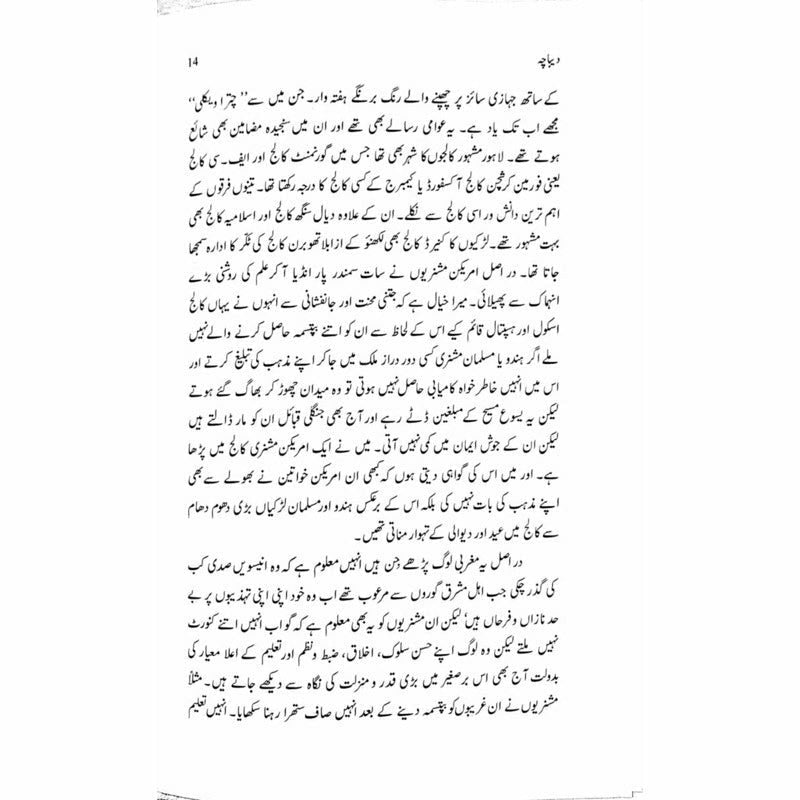 دیباچہ 14
کے ساتھ جہازی سائز پر چھپنے والے رنگ برنگے ہفتہ وار۔ جن میں سے ’’چترا ویکلی‘‘
مجھے اب تک یاد ہے۔ یہ عوامی رسالے بھی تھے اور ان میں سنجیدہ مضامین بھی شائع
ہوتے تھے۔ لاہور مشہور کالجوں کا شہر بھی تھا جس میں گورنمنٹ کالج اور ایف۔سی کالج
یعنی فورمین کرسچن کالج آکسفورڈ یا کیمبرج کے کسی کالج کا درجہ رکھتا تھا۔ تینوں فرقوں کے
اہم ترین دانش ور اسی کالج سے نکلے۔ ان کے علاوہ دیال سنگھ کالج اور اسلامیہ کالج بھی
بہت مشہور تھے۔ لڑکیوں کا کنیرڈ کالج بھی لکھنؤ کے ازابلا تھوبرن کالج کی ٹکّر کا ادارہ سمجھا
جاتا تھا۔ در اصل امریکن مشنریوں نے سات سمندر پار انڈیا آکر علم کی روشنی بڑے
انہماک سے پھیلائی۔ میرا خیال ہے کہ جتنی محنت اور جانفشانی سے انہوں نے یہاں کالج
اسکول اور ہسپتال قائم کیے اس کے لحاظ سے ان کو اتنے بپتسمہ حاصل کرنے والے نہیں
ملے اگر ہندو یا مسلمان مشنری کسی دور دراز ملک میں جا کر اپنے مذہب کی تبلیغ کرتے اور
اس میں انہیں خاطر خواہ کامیابی حاصل نہیں ہوتی تو وہ میدان چھوڑ کر بھاگ گئے ہوتے
لیکن یہ یسوع مسیح کے مبلغین ڈٹے رہے اور آج بھی جنگلی قبائل ان کو مار ڈالتے ہیں
لیکن ان کے جوش ایمان میں کمی نہیں آتی۔ میں نے ایک امریکن مشنری کالج میں پڑھا
ہے۔ اور میں اس کی گواہی دیتی ہوں کہ کبھی ان امریکن خواتین نے بھولے سے بھی
اپنے مذہب کی بات نہیں کی بلکہ اس کے برعکس ہندو اور مسلمان لڑکیاں بڑی دھوم دھام
سے کالج میں عید اور دیوالی کے تہوار مناتی تھیں۔
در اصل یہ مغربی لوگ پڑھے جن ہیں انہیں معلوم ہے کہ وہ انیسویں صدی کب
کی گذر چکی جب اہل مشرق گوروں سے مرعوب تھے اب وہ خود اپنی اپنی تہذیبوں پر بے
حد نازاں و فرحاں ہیں‘ لیکن ان مشنریوں کو یہ بھی معلوم ہے کہ گو اب انہیں اتنے کنورٹ
نہیں ملتے لیکن وہ لوگ اپنے حسن سلوک، اخلاق، ضبط و نظم اور تعلیم کے اعلا معیار کی
بدولت آج بھی اس برصغیر میں بڑی قدر و منزلت کی نگاہ سے دیکھے جاتے ہیں۔ مثلاً
مشنریوں نے ان غریبوں کو بپتسمہ دینے کے بعد انہیں صاف ستھرا رہنا سکھایا۔ انہیں تعلیم